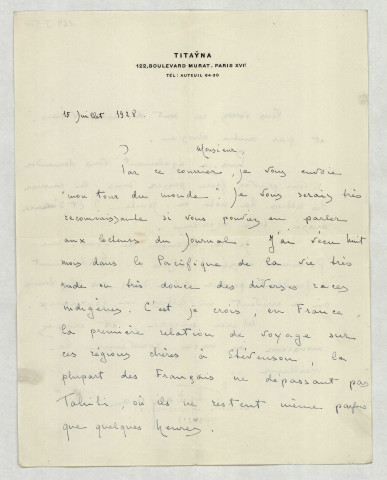 TITAŸNA
122, BOULEVARD MURAT. PARIS XVIᵉ
TÉL: AUTEUIL 64-30
15 Juillet 1928.
Monsieur,
Par ce courrier, je vous envoie
"mon tour du monde" Je vous serais très
reconnaissante si vous pouviez en parler
aux lecteurs du Journal. J'ai vécu huit
mois dans le Pacifique de la vie très
rude ou très douce des diverses races
indigènes. C'est je crois, en France,
la première relation de voyage sur
ces régions chères à Stevenson, la
plupart des Français ne dépassant pas
Tahiti, où ils ne restent même parfois
que quelques heures.